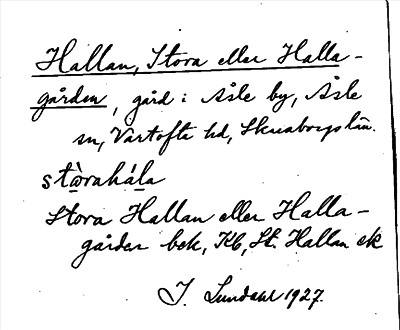 Hallan, Stora eller Halla-
gården, gård i Åsle by, Åsle
sn, Vartofta hd, Skaraborgs län.
stòrahála
Stora Hallan eller Halla-
gården bok, Kb, St. Hallan ek
I. Lundahl 1927.